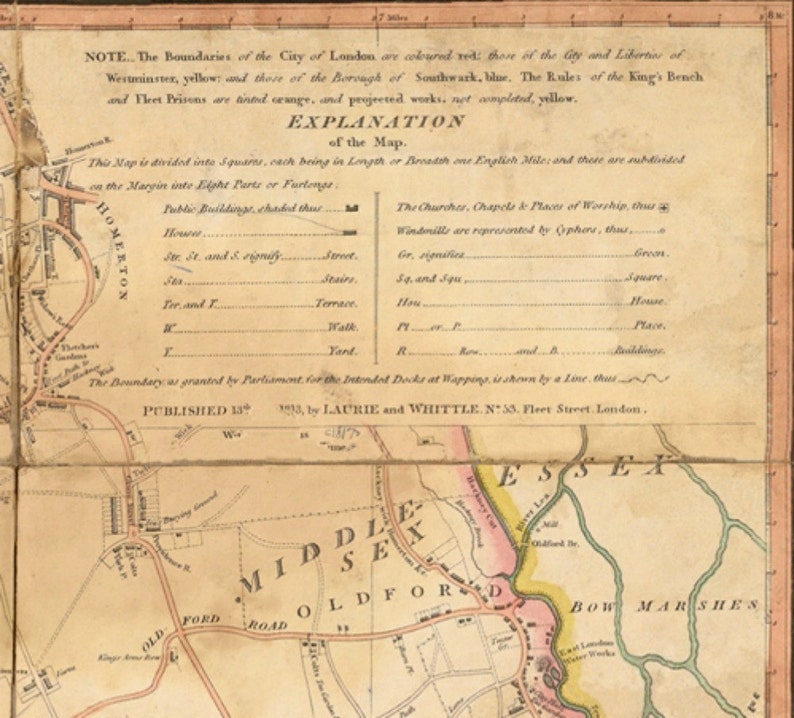 7 Miles
8 M
NOTE.. The Boundaries of the City of London are coloured red: those of the City and Liberties of
Westminster, yellow: and those of the Borough of Southwark, blue. The Rules of the King's Bench
and Fleet Prisons are tinted orange, and projected works, not completed, yellow.
EXPLANATION
of the Map.
This Map is divided into Squares, each being in Length or Breadth one English Mile; and these are subdivided
on the Margin into Eight Parts or Furlongs.
Public Buildings, shaded thus
Houses
Str. St. and S. signify Street.
Sta Stairs.
Ter. and T. Terrace.
W Walk.
Y Yard.
The Churches, Chapels & Places of Worship, thus
Windmills are represented by Cyphers, thus,
Gr. signifies Green.
Sq. and Squ Square.
Hou House.
Pl. or P. Place.
R. Row and B. Buildings.
The Boundary, as granted by Parliament, for the Intended Docks at Wapping, is shewn by a Line, thus
PUBLISHED 13th by LAURIE and WHITTLE. No. 53. Fleet Street. London.
Homerton R.
HOMERTON
Fletcher's
Gardens
Wick
ESSEX
Hackney Cut
River Lea
Mill
Oldford Br.
Burying Ground
Providence R.
MIDDLE-
SEX
OLDFORD
BOW MARSHES
OLD FORD ROAD
Kings Arms Row
East London
Water Works